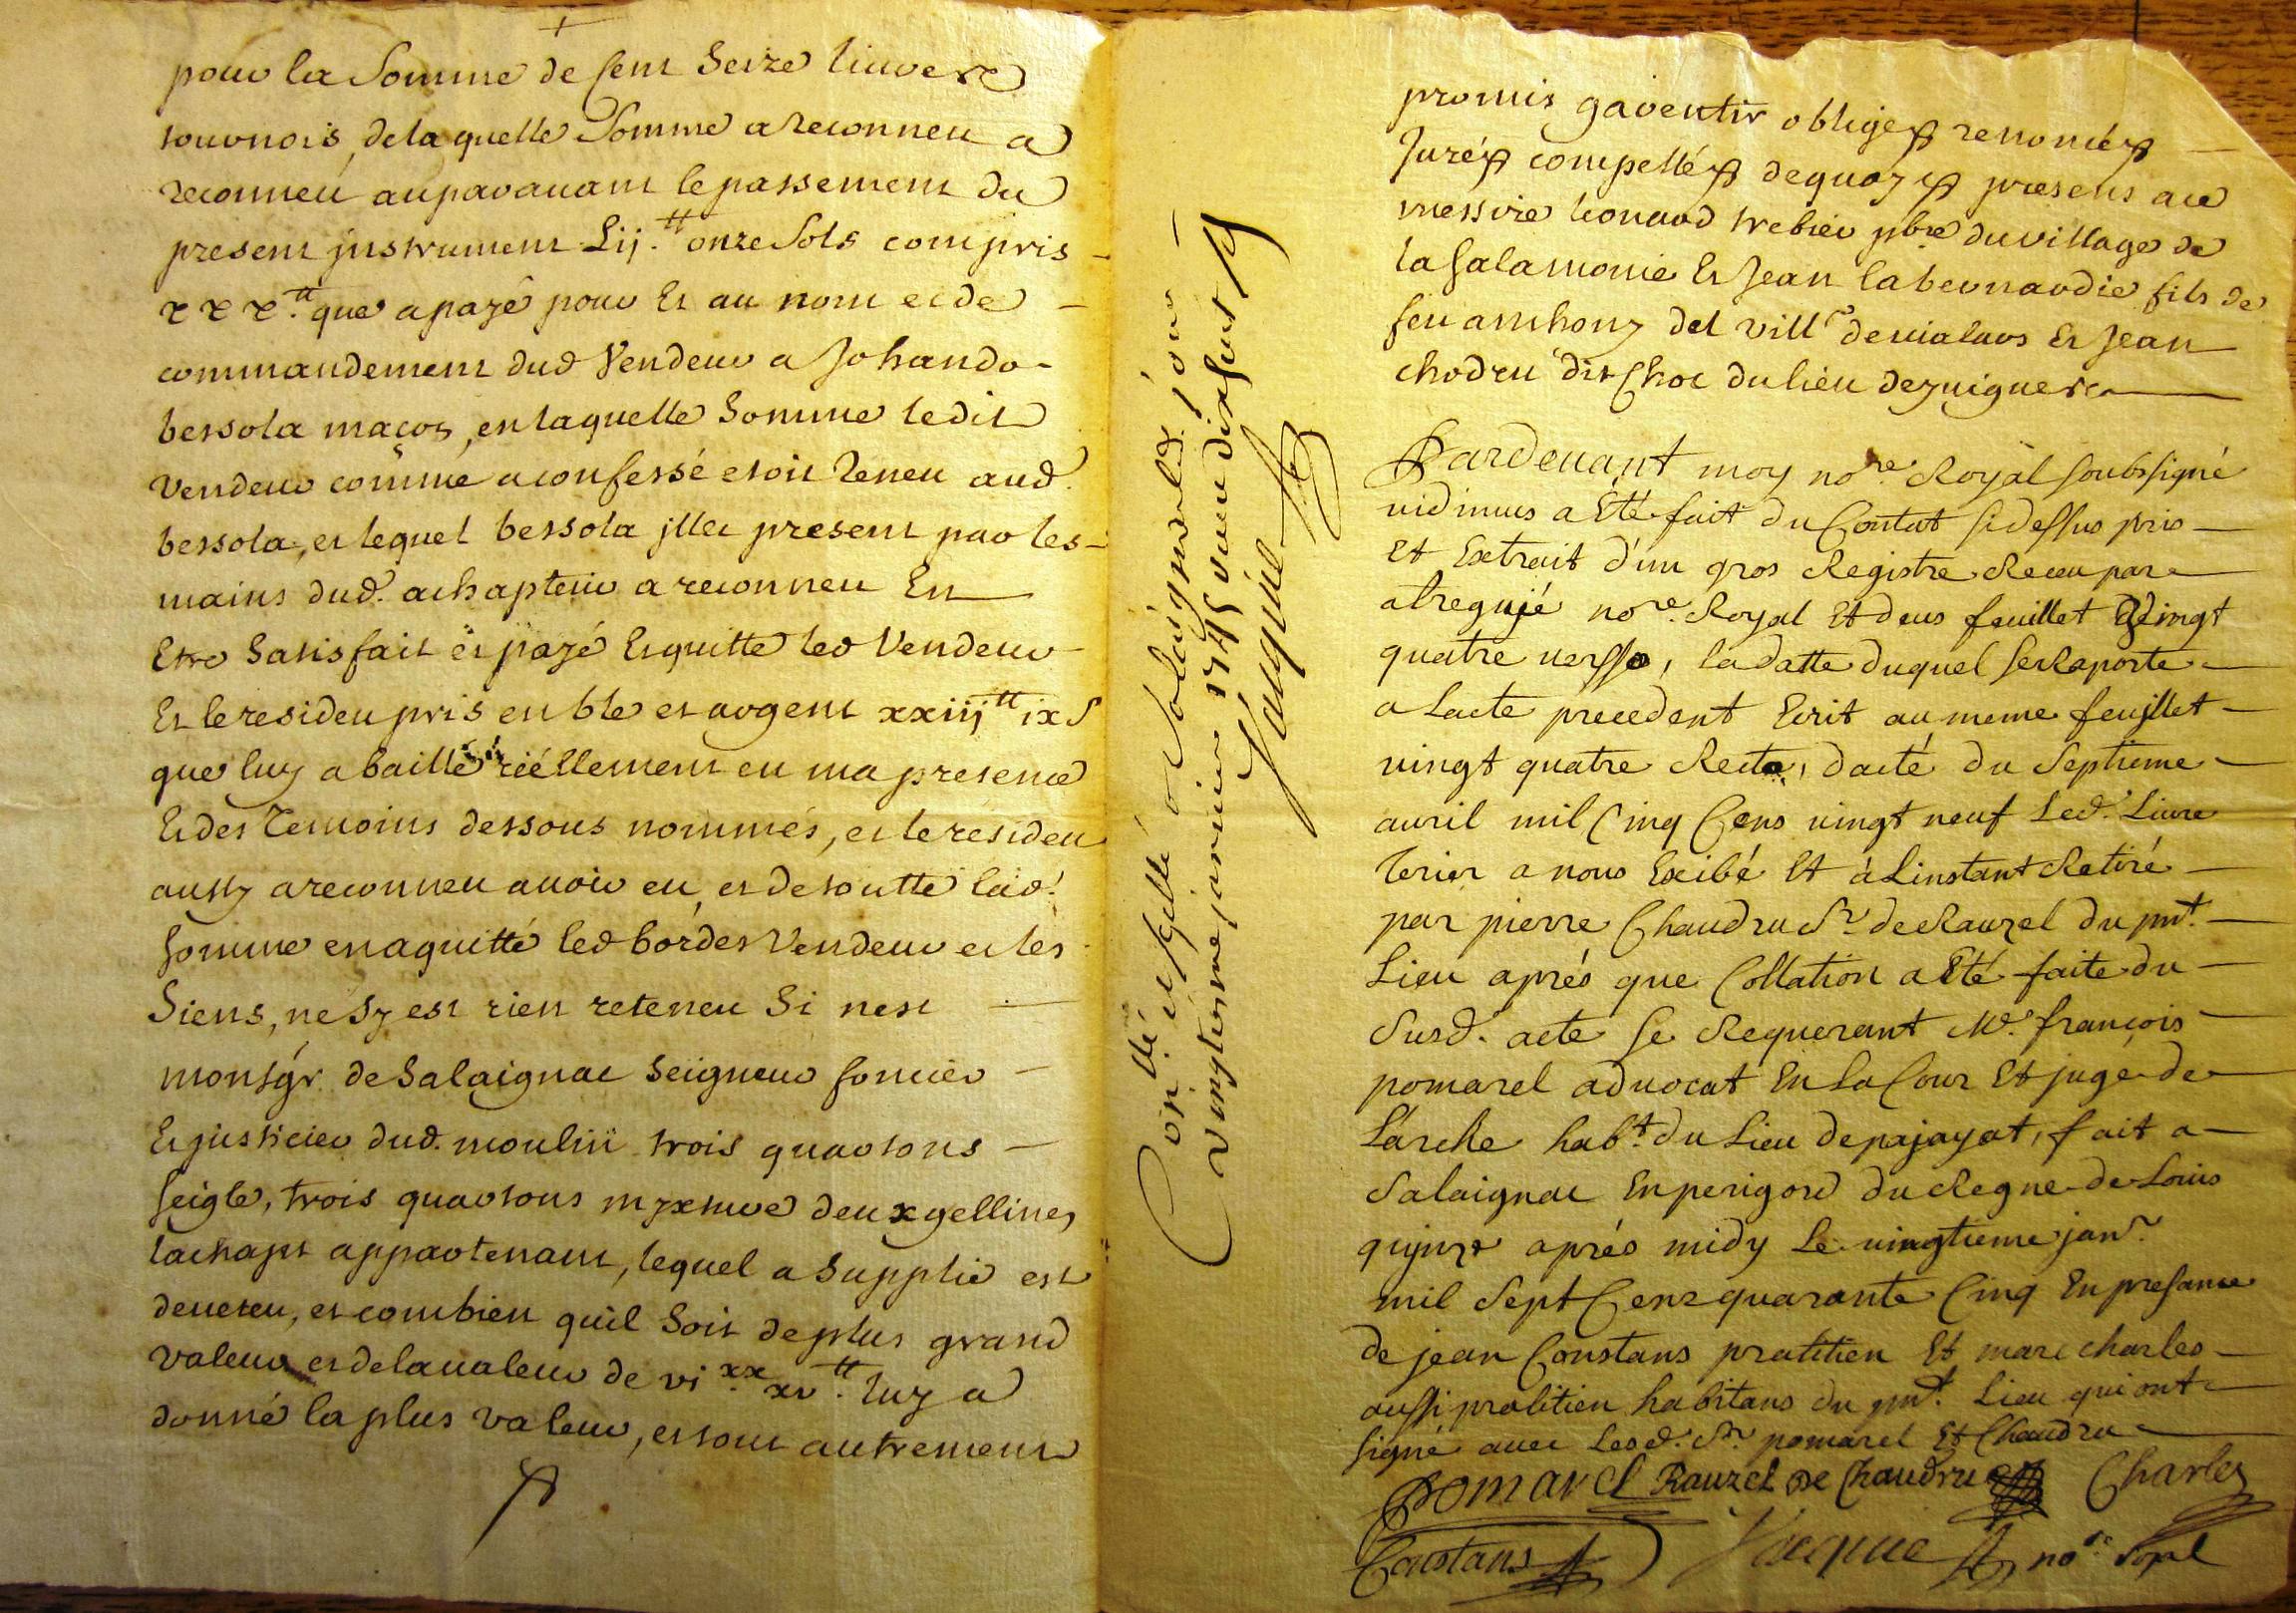 pour la Somme de Cent Seize liuvere
tournois, de la quelle Somme a reconneu a
reconneu auparauant le passement du
present jnstrument Lij.tt onze Sols compris
xxx.tt que a payé pour Et au nom et de
commandement dud Vendeur a Johando
bessola maçon, en laquelle Somme ledit
vendeur comme a confessé etoit teneu aud.
bessola, et lequel bessola jllec present par les
mains dud. achapteur a reconneu En
Etre Satisfait et payé Et quitte led Vendeur
Et le resideu pris en blé et argent xxiij tt ix S
que luy a baillé réellement en ma presence
Et des temoins dessous nommés, et le resideu
aussy a reconneu auoir eu, et de toutte lad.
Somme en a quitté led bordes Vendeur et les
Siens, ne Sy est rien reteneu Si nest
monsgr. de Salaignac Seigneur foncier
Et justicier dud. moulin trois quartons
Seigle, trois quartons myxture deux gellines
lachapt appartenant, lequel a Supplié est
deveteu, et combien quil Soit de plus grand
valeur et de la ualeur de vi xx xv.tt luy a
donné la plus valeur, et tout autrement
Con.llé et Scellé a Salaignac led. jour
vingtieme janvier 1745
promis garentir obliges renoncés
Jurés compellés dequoy presens a
messire leonard trebier pbre du village de
la Salamonie Et Jean labernardie fils de
feu anthony del vill
chodru dit Choc du lieu
Pardeuant moy nore. Royal Soubssigné
uidimus a Eté fait du Contrat Si dessus pris
Et Extrait d'un gros Registre Receu par
nore. Royal Et deus feuillet vingt
quatre verso, la datte duquel Se Raporte
a Lacte precedent Ecrit au meme feuillet
vingt quatre Recto, dacté du Septieme
auril mil Cinq Cens vingt neuf Led. Liure
terier a nous Exibé Et à Linstant Retiré
par pierre Chaudru Sr. de Rauzel du pnt.
Lieu aprés que Collation a Eté faite du
Susd. acte Ce Requerant Me. françois
pomarel aduocat En la Cour Et juge de
Larche habt. du Lieu de pajayat, fait a
Salaignac En perigord du Regne de Louis
qujnze aprés midy Le vingtieme janr.
mil Sept Cens quarante Cinq En presance
de jean Constans pratitien Et marc charles
aussi pratitien habitans du pnt. Lieu qui ont
signé auec Lesd. Srs. pomarel Et Chaudru
Pomarel Rauzel De Chaudru Charles
Constans nore Royal